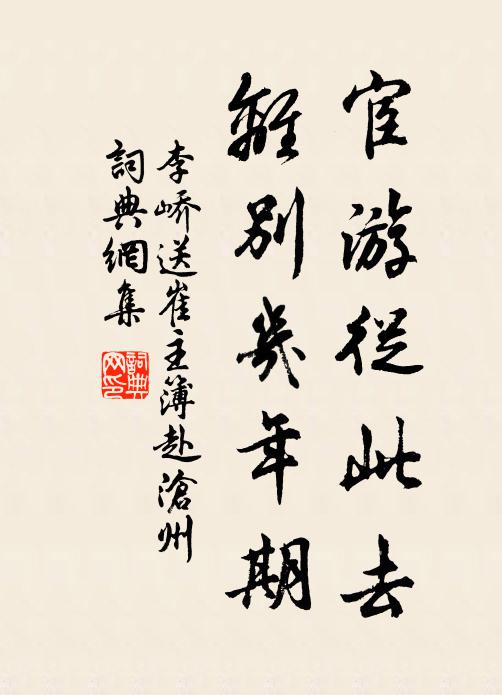 宦游從此去
離別幾年期
李嶠送崔主簿赴滄州
詞典網集
詞典
网印